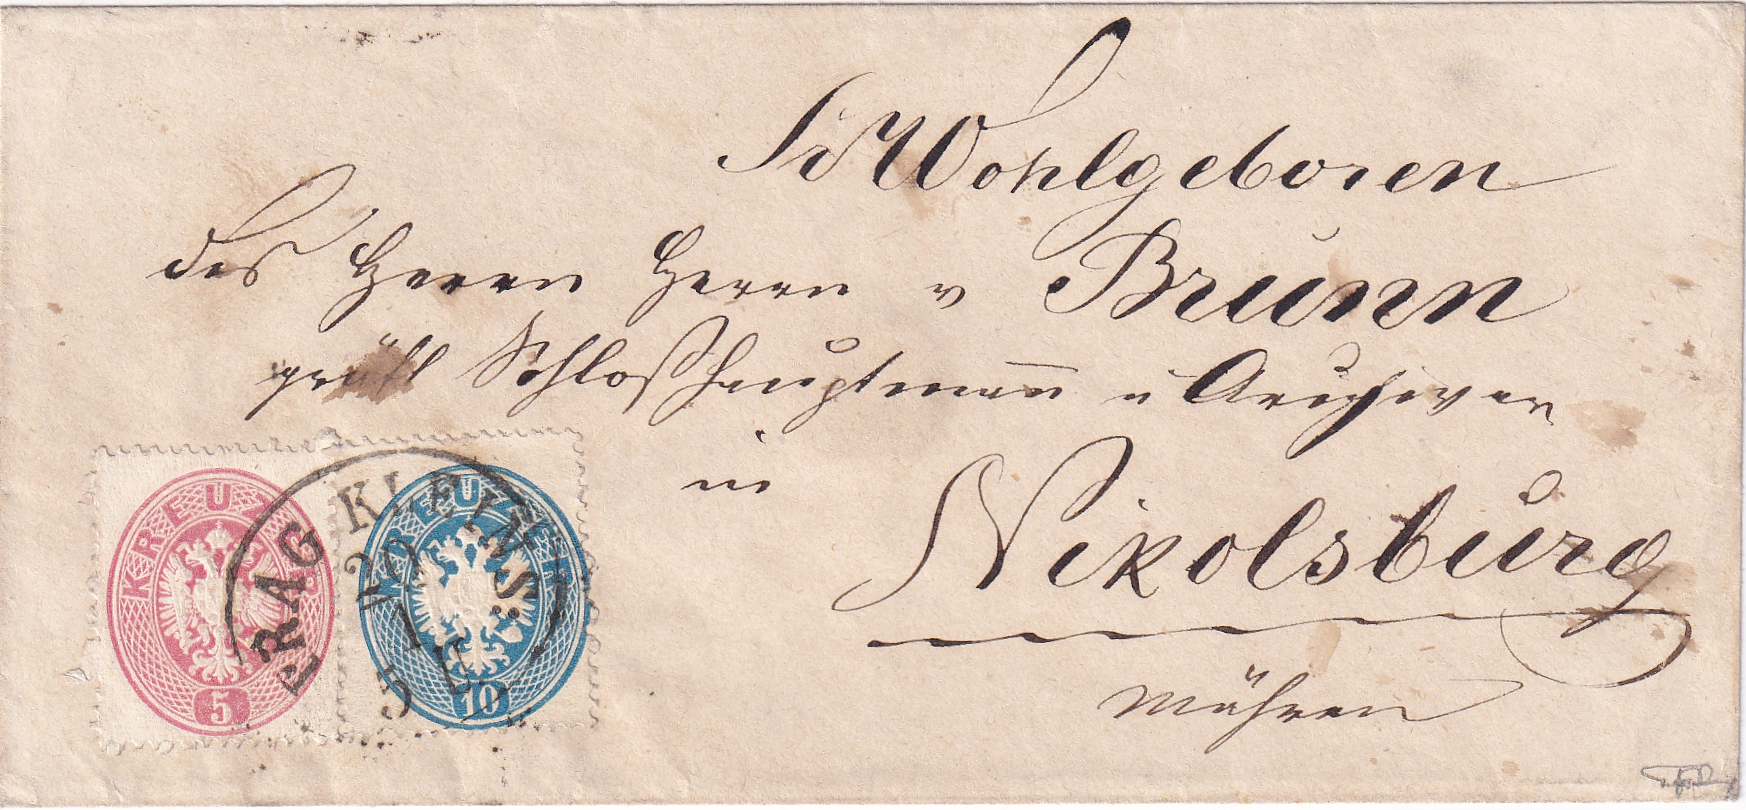 Sr Wohlgeboren
des Herrn Herrn v Brunn
gräfl Schloßhauptmann u Archivar
in Nikolsburg
Mähren
KREUZER
5
KREUZER
10
PRAG KLEINS:
20
5